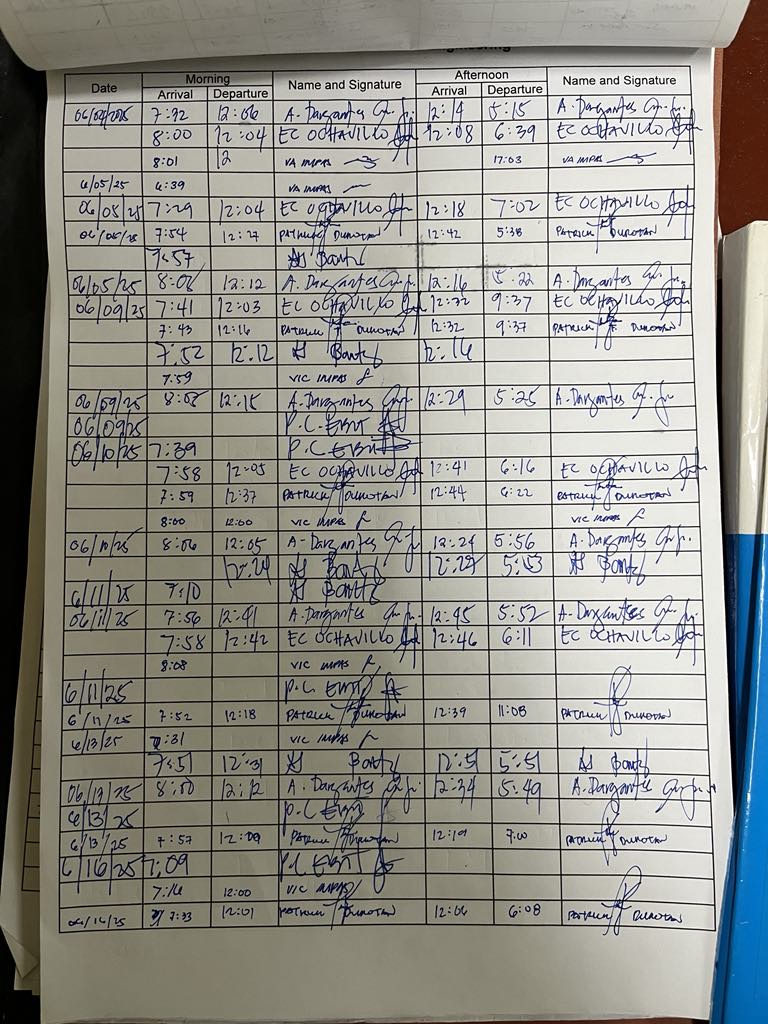 Morning Afternoon
Date Arrival Departure Name and Signature Arrival Departure Name and Signature
7:22 12:06 A. Dargantes 12:14 5:15 A. Dargantes
8:00 12:04 EC OCHAVILLO 12:08 6:39 EC OCHAVILLO
8:01 12 VA IMPAS 17:03 VA IMPAS
6/05/25 6:39 VA IMPAS
06/05/25 7:29 12:04 EC OCHAVILLO 12:18 7:02 EC OCHAVILLO
7:54 12:27 PATRICK DUNOTAN 12:42 5:38 PATRICK DUNOTAN
7:57
06/05/25 12:12 A. Dargantes 12:16 5:22 A. Dargantes
06/09/25 7:41 12:03 EC OCHAVILLO 12:32 9:37 EC OCHAVILLO
7:43 12:16 PATRICK DUNOTAN 12:32 9:37 PATRICK DUNOTAN
7:52 12:12 12:16
7:59 VIC IMPAS
06/09/25 8:05 12:15 A. Dargantes 12:29 5:25 A. Dargantes
06/09/25 P.C. EBIT
06/10/25 7:39 P.C. EBIT
7:58 12:05 EC OCHAVILLO 12:41 6:16 EC OCHAVILLO
7:59 12:37 PATRICK DUNOTAN 12:44 6:22 PATRICK DUNOTAN
8:00 12:00 VIC IMPAS VIC IMPAS
06/10/25 8:06 12:05 A. Dargantes 12:24 5:56 A. Dargantes
12:24 12:27 5:53
6/11/25 7:10
06/11/25 7:56 12:41 A. Dargantes 12:45 5:52 A. Dargantes
7:58 12:42 EC OCHAVILLO 12:46 6:11 EC OCHAVILLO
8:08 VIC IMPAS
6/11/25 P.C. EBIT
6/11/25 7:52 12:18 PATRICK DUNOTAN 12:39 11:08 PATRICK DUNOTAN
6/13/25 7:31 VIC IMPAS
7:51 12:31 12:51 5:51
06/13/25 8:00 12:12 A. Dargantes 12:34 5:49 A. Dargantes
6/13/25 P.C. EBIT
6/13/25 7:57 12:09 PATRICK DUNOTAN 12:19 7:00 PATRICK DUNOTAN
6/16/25 7:09 P.C. EBIT
7:16 12:00 VIC IMPAS
06/16/25 7:33 12:01 PATRICK DUNOTAN 12:06 6:08 PATRICK DUNOTAN